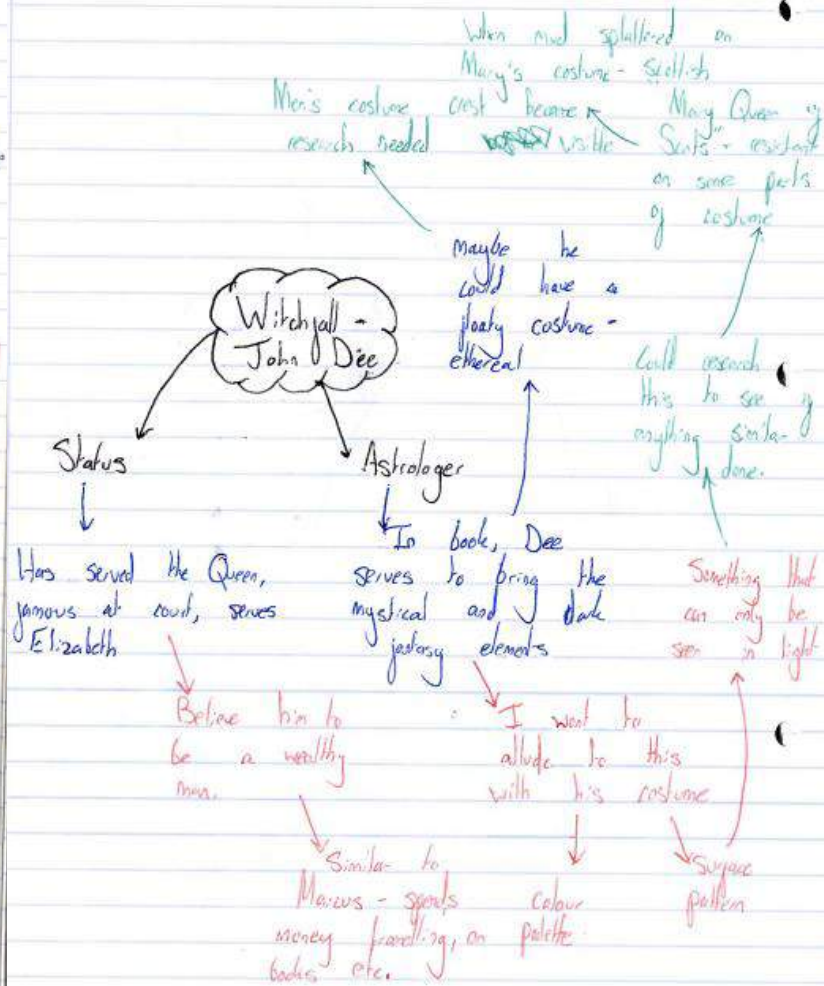 When mud splattered on
Mary's costume - Scottish
crest became
visible
Men's costume
research needed
"Mary Queen of
Scots" - resistant
on some parts
of costume
maybe he
could have a
floaty costume -
ethereal
Witchfall -
John Dee
Could research
this to see if
anything similar
done.
Status
Astrologer
Has served the Queen,
famous at court, serves
Elizabeth
In book, Dee
serves to bring the
mystical and dark
fantasy elements
Something that
can only be
seen in light
Believe him to
be a wealthy
man.
I want to
allude to this
with his costume
Similar to
Marcus - spends
money travelling, on
books etc.
colour
palette
Surface
pattern